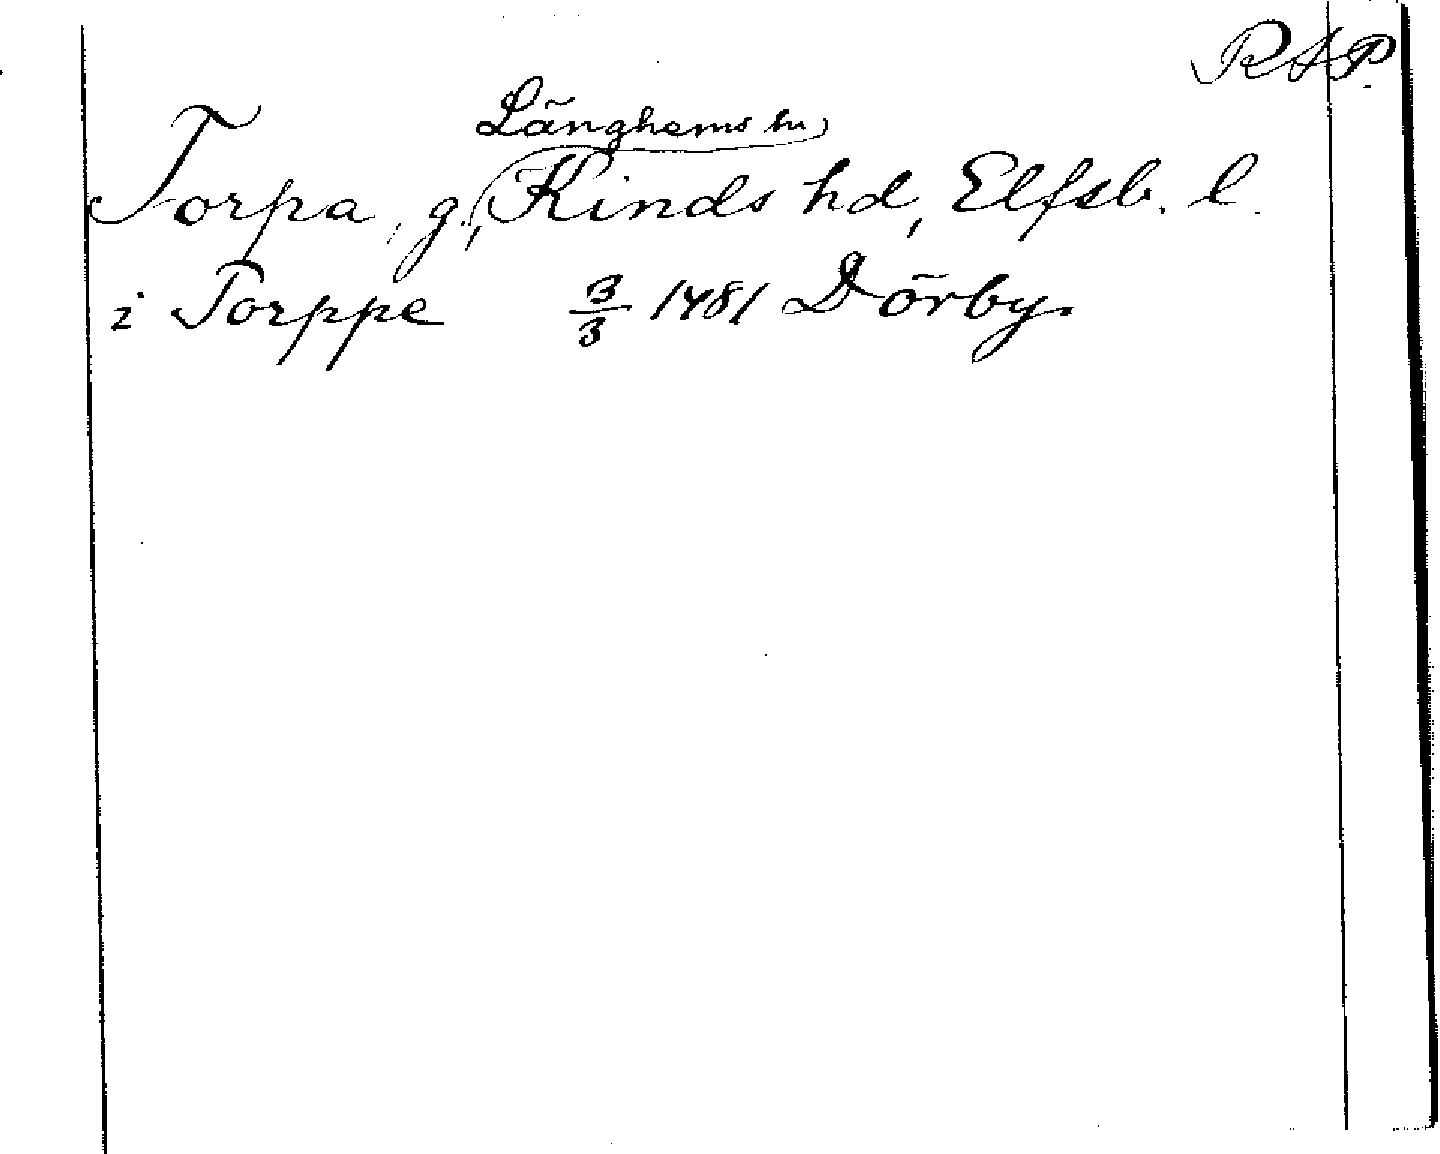 RAP
Länghems sn,
Torpa, g., Kinds hd, Elfsb. l.
i Torppe 3/3 1481 Dörby